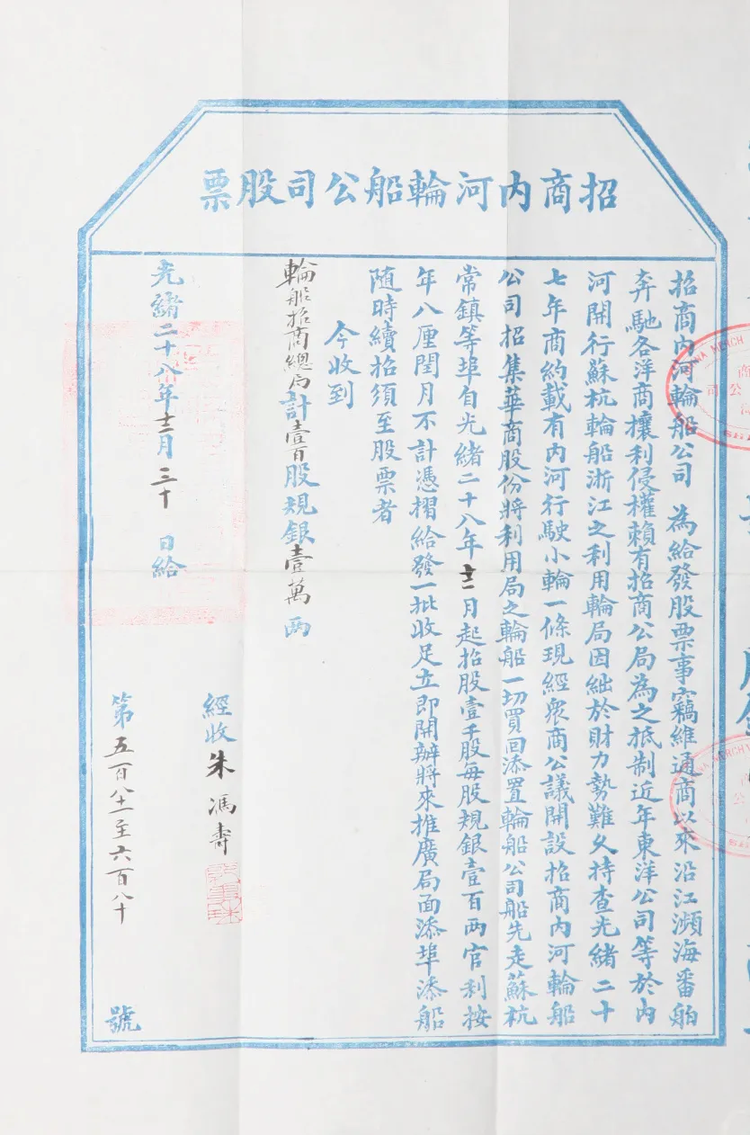 招商內河輪船公司股票
招商內河輪船公司 為給發股票事竊維通商以來沿江瀕海番舶
奔馳各洋商攘利侵權賴有招商公局為之抵制近年東洋公司等於內
河開行蘇杭輪船浙江之利用輪局因絀於財力勢難久持查光緒二十
七年商約載有內河行駛小輪一條現經衆商公議開設招商內河輪船
公司招集華商股份將利用局之輪船一切買回添置輪船公司船先走蘇杭
常鎮等埠自光緒二十八年十二月起招股壹千股每股規銀壹百兩官利按
年八厘閏月不計憑摺給發一批收足立即開辦將來推廣局面添埠添船
隨時續招須至股票者
今收到
輪船招商總局計壹百股規銀壹萬兩
經收朱馮壽
光緒二十八年十二月三十日給
第五百八十一至六百八十號